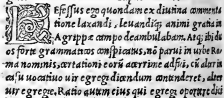 DEfessus ego quondam ex diutina commenta
tione laxandi, leuandiq; animi gratia in
Agrippæ campo deambulabam. Atq; ibi duos
os forte grammaticos conspicatus, nō parui in urbe Ro
ma nominis, certationi eorū acerrimæ adfui, cū alter in
casu uocatiuo uir egregi dicendum contenderet, alter
uir egregie. Ratio autem eius qui egregi oportere